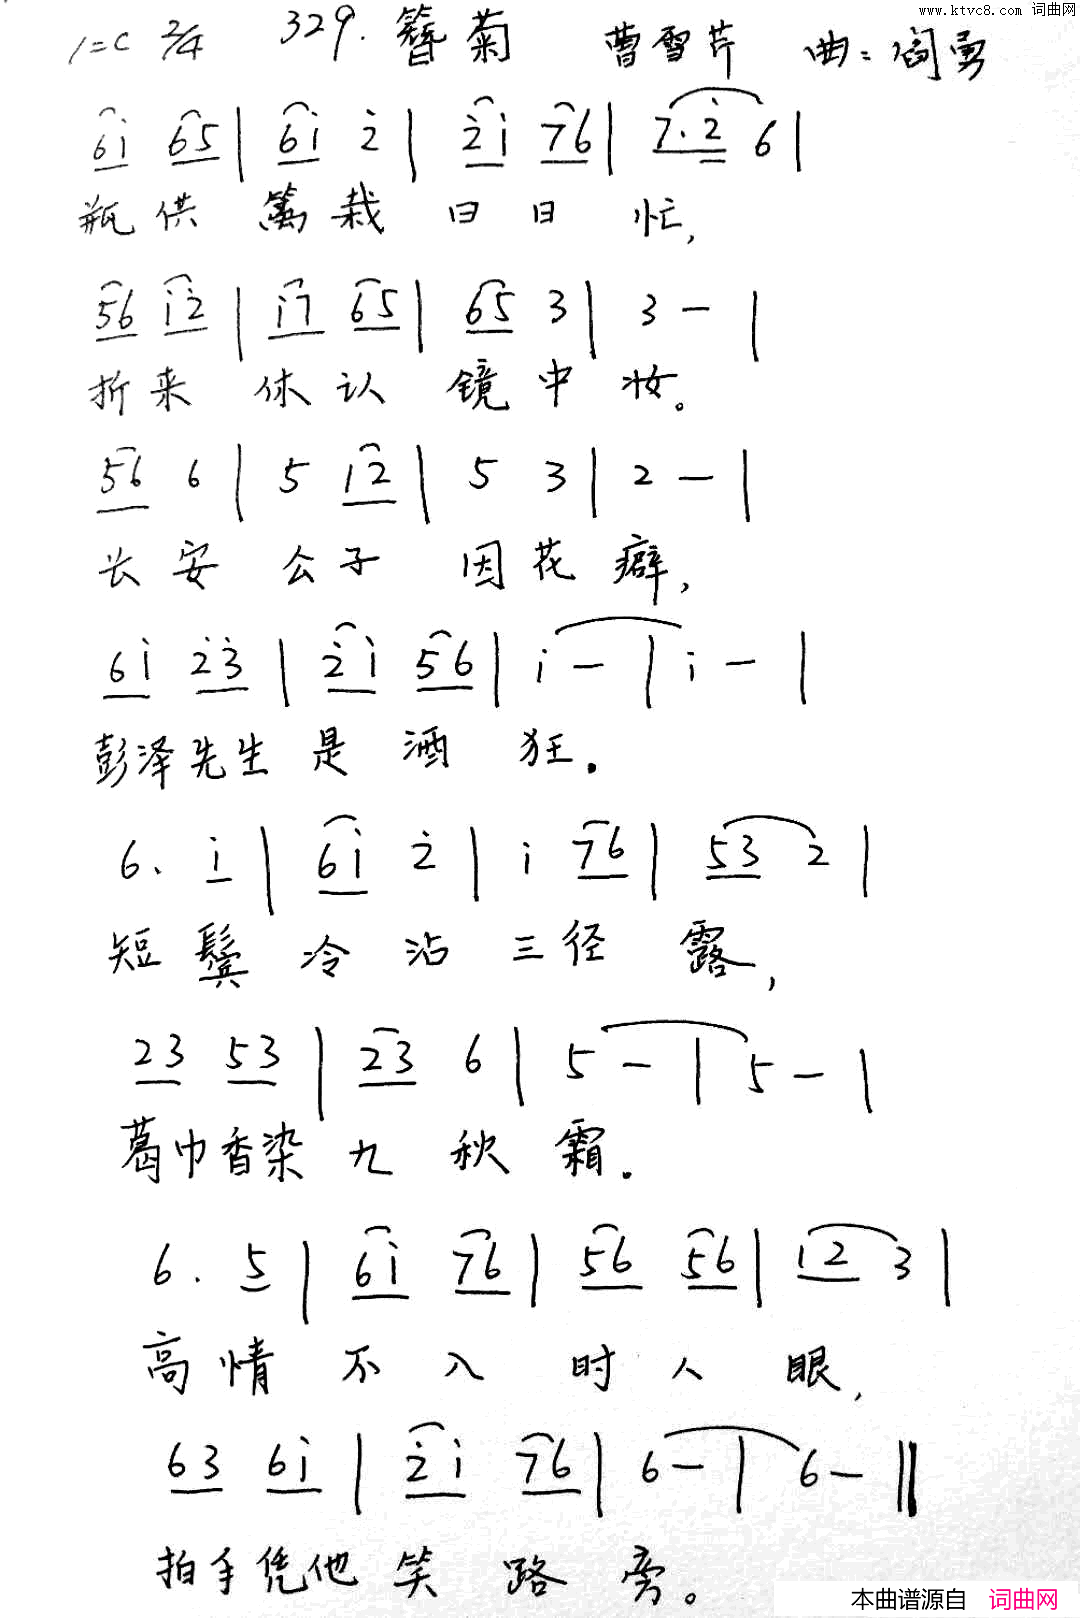 www.ktvc8.com 词曲网
1=C 2/4 329. 簪菊 曹雪芹 曲:阎勇
6i 65 | 6i 2̇ | 2̇i 76 | 7.2̇ 6 |
瓶供 篱栽 日日 忙,
56 i2̇ | i7 65 | 65 3 | 3 — |
折来 休认 镜中妆。
56 6 | 5 12 | 5 3 | 2 — |
长安 公子 因花癖,
6i 2̇3̇ | 2̇i 56 | i — | i — |
彭泽先生 是 酒 狂.
6. i | 6i 2̇ | i 76 | 53 2 |
短鬓 冷沾 三径 露,
23 53 | 23 6 | 5 — | 5 — |
葛巾香染 九 秋 霜.
6. 5 | 6i 76 | 56 56 | 12 3 |
高情 不入 时人 眼,
63 6i | 2̇i 76 | 6 — | 6 — ‖
拍手凭他 笑 路 旁。
本曲谱源自 词曲网